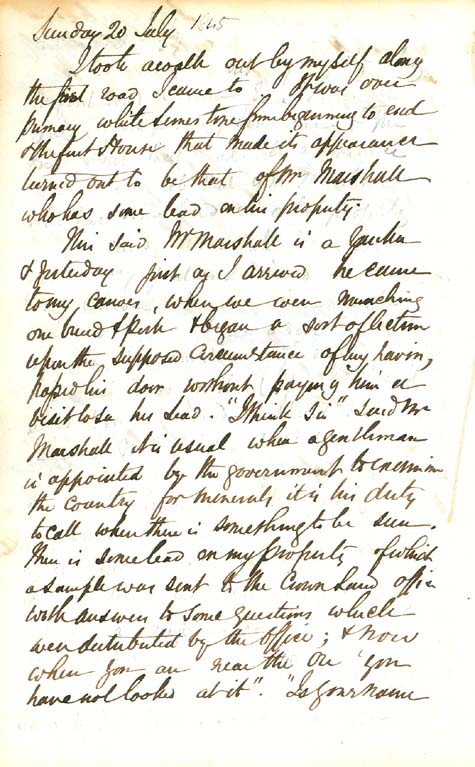 Sunday 20 July 1845
I took a walk out by myself along
the first road I came to It was over
primary white limestone from beginning to end
& the first House that made its appearance
turned out to be that of Mr Marshall
who has some lead on his property
This said Mr Marshall is a Yankee
& yesterday just as I arrived he came
to my canoes, when we were munching
our bread & Pork & began a sort of lecture
upon the supposed circumstance of my having
passed his door without paying him a
visit to see his lead. "I think Sir" said Mr
Marshall it is usual when a gentleman
is appointed by the government to examine
the country for minerals it is his duty
to call when there is something to be seen.
There is some lead on my property of which
a sample was sent to the Crown Land office
with answers to some questions which
were distributed by the office; & now
when you are near the ore you
have not looked at it". "Is your name